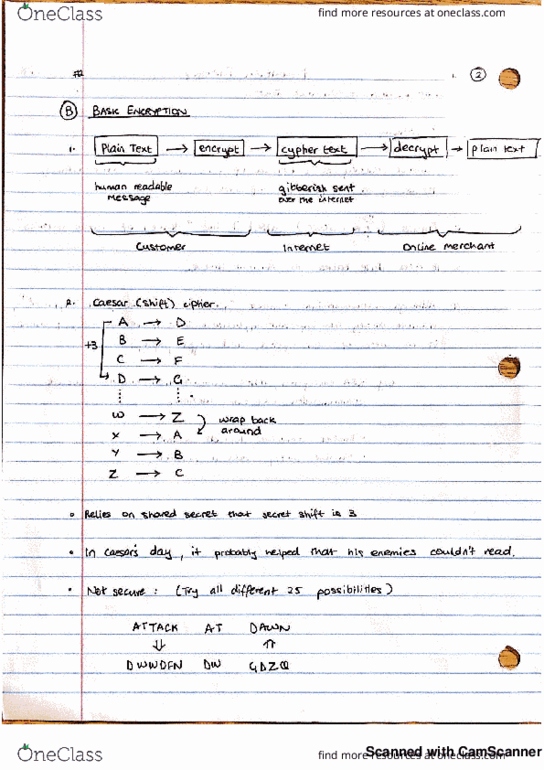 OneClass
find more resources at oneclass.com
#2
2
B BASIC ENCRYPTION
1. Plain Text → encrypt → cypher text → decrypt → plain text
human readable gibberish sent
message over the internet
Customer Internet Online merchant
A. Caesar (shift) cipher.
A → D
+3 B → E
C → F
D → G
W → Z
wrap back
X → A around
Y → B
Z → C
• Relies on shared secret that secret shift is 3
• In Caesar's day, it probably helped that his enemies couldn't read.
• Not secure: (Try all different 25 possibilities)
ATTACK AT DAWN
⇓ ⇑
DWWDFN DW GDZQ
Scanned with CamScanner
OneClass
find more resources at oneclass.com